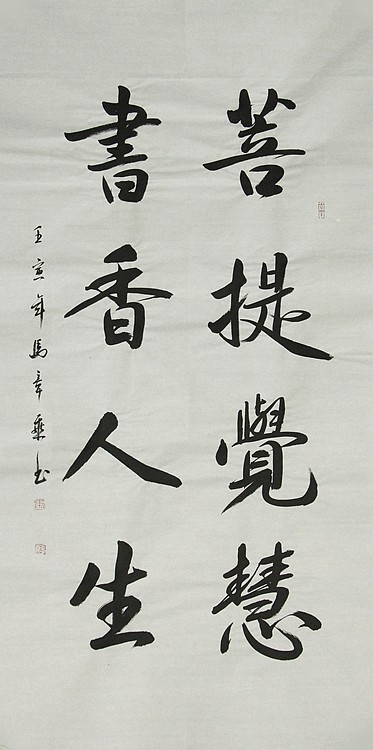 菩提覺慧
書香人生
壬寅年馬章乘书